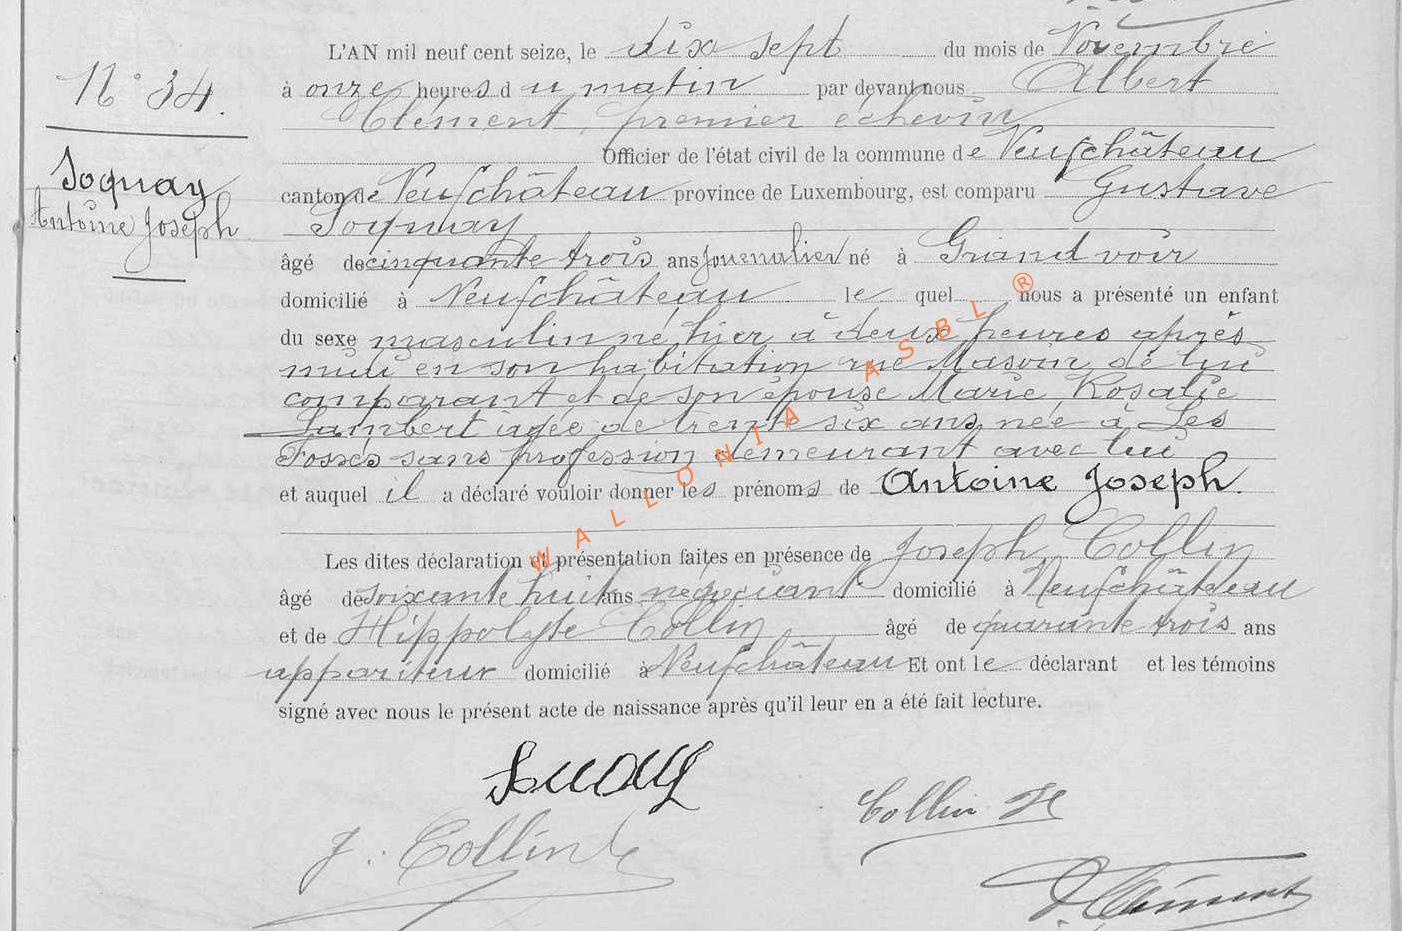 N° 34.
Soquay
Antoine Joseph
L'AN mil neuf cent seize, le dix sept du mois de Novembre
à onze heures du matin par devant nous Albert
Clément, premier échevin
Officier de l'état civil de la commune de Neufchâteau
canton de Neufchâteau province de Luxembourg, est comparu Gustave
Soquay
âgé de cinquante trois ans journalier né à Grandvoir
domicilié à Neufchâteau le quel nous a présenté un enfant
du sexe masculin né hier à deux heures après
midi en son habitation rue de lui
comparant et de son épouse Marie Rosalie
Lambert âgée de trente six ans née à Les
Fossés sans profession demeurant avec lui
et auquel il a déclaré vouloir donner les prénoms de Antoine Joseph.
Les dites déclaration et présentation faites en présence de Joseph Collin
âgé de soixante huit ans négociant domicilié à Neufchâteau
et de Hippolyte Collin âgé de quarante trois ans
appariteur domicilié à Neufchâteau Et ont le déclarant et les témoins
signé avec nous le présent acte de naissance après qu'il leur en a été fait lecture.
Soquay
Collin H
J. Collin
A. Clément
WALLONIA ASBL ®